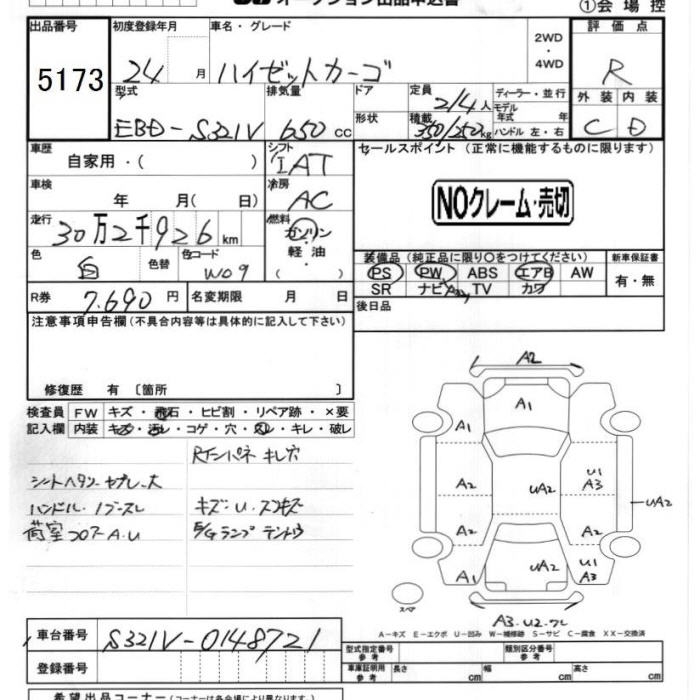 オークション出品申込書
①会場控
出品番号 初度登録年月 車名・グレード 評価点
5173 24 月 ハイゼットカーゴ 2WD・4WD R
型式 排気量 ドア 定員 ディーラー・並行 外装 内装
EBD-S321V 650 cc 形状 2/4人 モデル年式 年 C D
積載 350/250kg ハンドル 左・右
車歴 シフト セールスポイント (正常に機能するものに限ります)
自家用・( ) IAT
車検 冷房 NOクレーム・売切
年 月 ( 日) AC
走行 燃料
30万2千926 km ガソリン
色 色替 色コード 軽油・
白 W09 ( )
装備品 (純正品に限り○をつけてください) 新車保証書
PS PW ABS エアB AW 有・無
SR ナビ TV カワ
R券 7,690 円 名変期限 月 日
後日品
注意事項申告欄(不具合内容等は具体的に記入して下さい)
修復歴 有 〔箇所 〕
検査員 FW キズ・飛石・ヒビ割・リペア跡・×要
記入欄 内装 キズ・汚レ・コゲ・穴・スレ・キレ・破レ
Rインパネ キレ穴
ハンドル
キズ・U・
荷室フロアA.U
E/Gランプ テントウ
A2
A1
A2 UA2 U1 A3
UA2
A2 A2
A1 UA2 U1 A3
スペア
A3.U2.
A-キズ E-エクボ U-凹み W-補修跡 S-サビ C-腐食 XX-交換済
車台番号 S321V-0148721
型式指定番号 参考 類別区分番号 参考
登録番号
車庫証明用 参考 長さ cm 幅 cm 高さ cm
希望出品コーナー(コーナーは各会場により異なります)